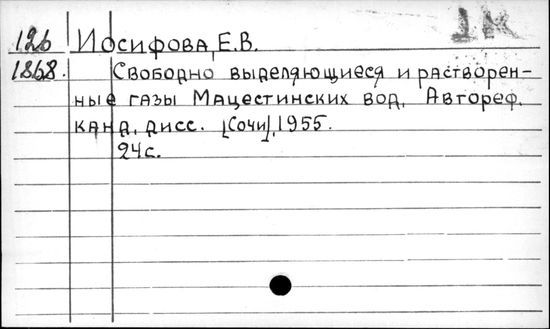 126 Иосифова, Е.В.
1868. Свободно выделяющиеся и растворен-
ные газы Мацестинских вод. Автореф.
канд. дисс. [Сочи], 1955.
24с.